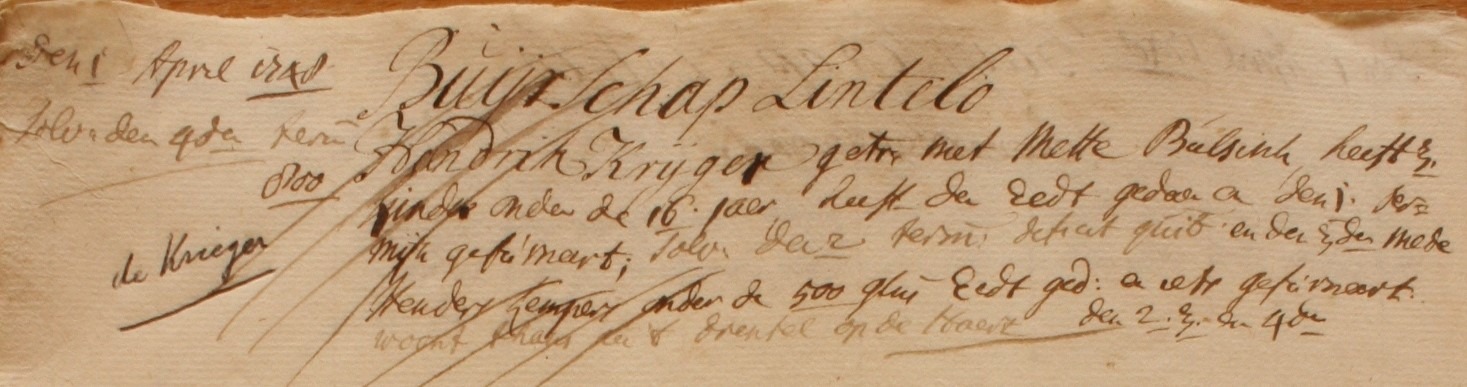 Den 1 April 1748
Solv: den 4den term
800
de Krieger
Buijrschap Lintelo
Hendrik Krÿger getr. met Mette Bulsink heeft 3.
kinder onder de 16. jaer, heeft den Eedt gedaen en den 1. Ter=
mijn gefurneert; Solv. den 2 termi: detract quit en den 3den mede
Henders Kempers onder de 500 gl: Eedt ged: en iets gefurneert.
woont thans in 't drentel op de Haert den 2. 3. en 4de